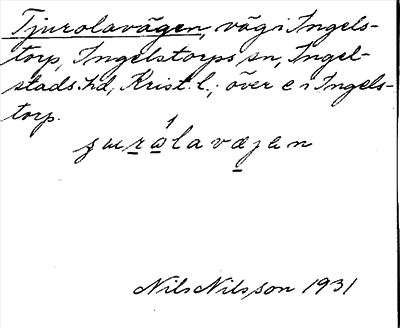 Tjurolavägen, väg i Ingels-
torp, Ingelstorps sn, Ingel-
stads hd, Krist. l.; över e i Ingels-
torp.
Nils Nilsson 1931